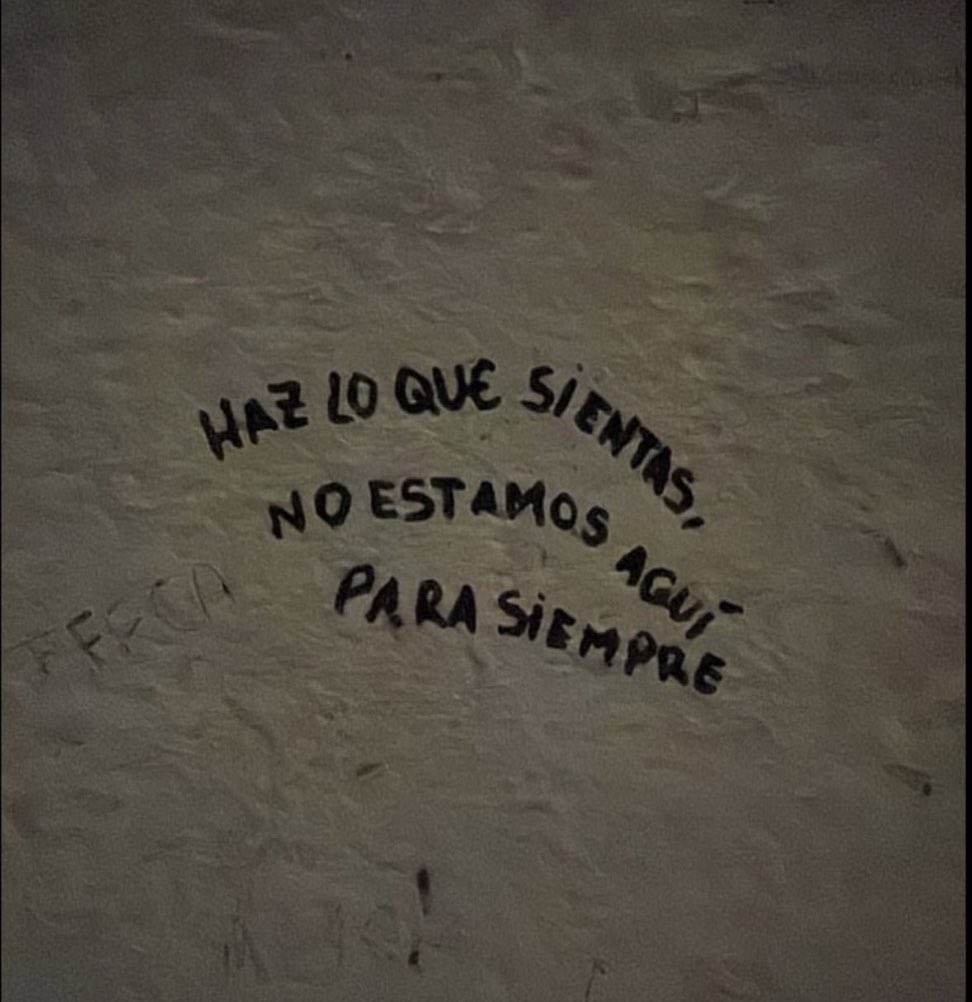 HAZ LO QUE SIENTAS,
NO ESTAMOS AQUÍ
PARA SIEMPRE